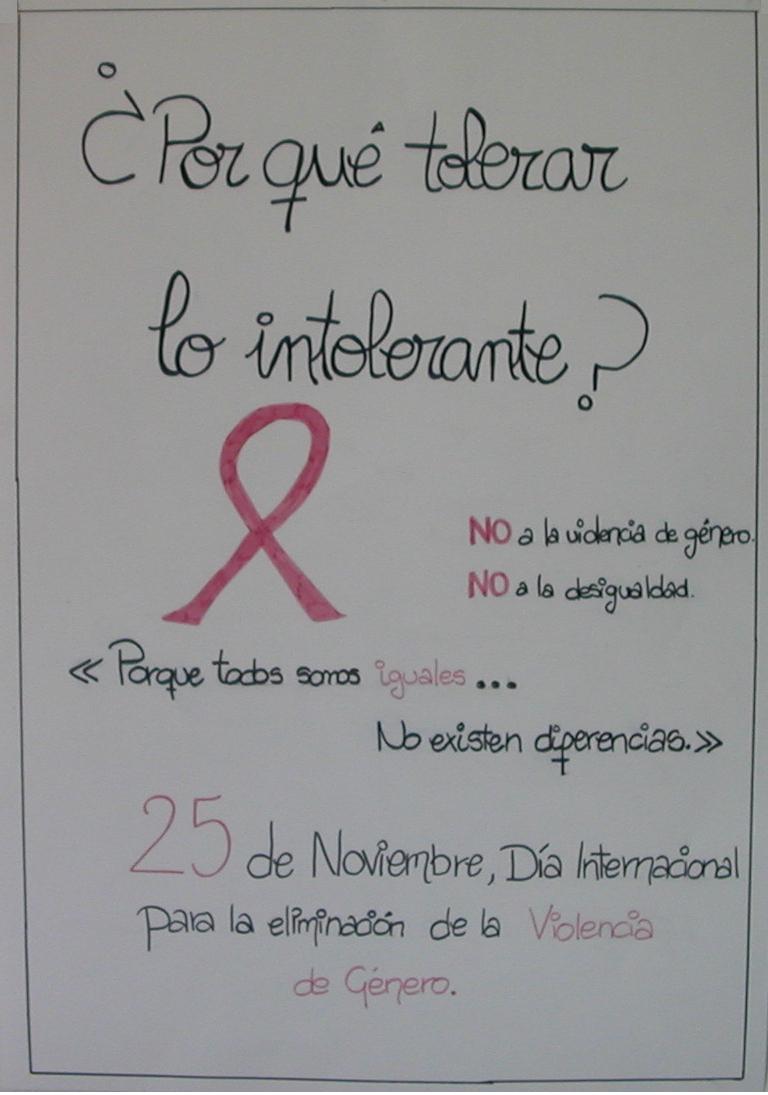 ¿Por qué tolerar
lo intolerante?
NO a la violencia de género.
NO a la desigualdad.
«Porque todos somos iguales...
No existen diferencias.»
25 de Noviembre, Día Internacional
para la eliminación de la Violencia
de Género.